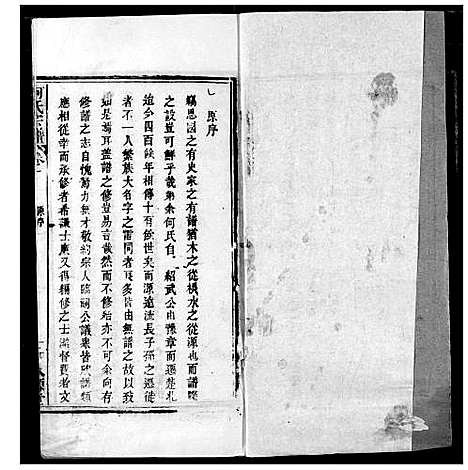 原序
竊思國之有史家之有譜猶木之從根水之從源也而譜
之設豈可鮮乎哉第余何氏自 紹武公由豫章而遷楚札
迨今四百餘年相傳十有餘世矣而源遠流長子孫之遷徙
者不一人繁族大名字之雷同者吳多皆由無譜之故以致
如是耳蓋譜之修豈易言哉然而不修始亦余向有
修譜之志自愧力無才敬約宗人臨祠公議衆皆欣諾類
應相從幸而承修者希議士廣又得精修之士滋督費者文
何氏宗譜卷
原序